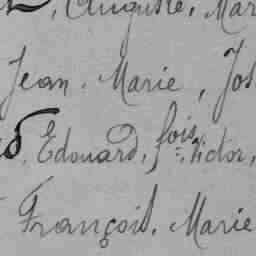 , Auguste, Mar
Jean, Marie, Jos
Edouard, fois, Victor,
François, Marie